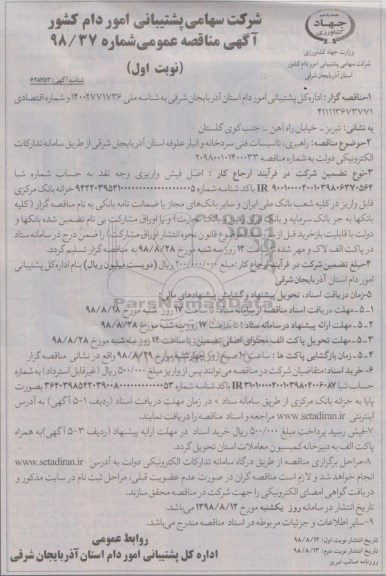 جهاد
کشاورزی
وزارت جهاد کشاورزی
شرکت سهامی پشتیبانی امور دام کشور
استان آذربایجان شرقی
شرکت سهامی پشتیبانی امور دام کشور
آگهی مناقصه عمومی شماره ۹۸/۳۷
(نوبت اول)
شناسه آگهی:
۱-مناقصه گزار: اداره کل پشتیبانی امور دام استان آذربایجان شرقی به شناسه ملی ۱۴۰۰۲۷۷۱۷۳۶ و شماره اقتصادی
۴۱۱۱۱۳۶۷۳۷۷۱
به نشانی: تبریز - خیابان راه آهن - جنب کوی گلستان
۲-موضوع مناقصه: راهبری، تاسیسات فنی سردخانه و انبار علوفه استان آذربایجان شرقی از طریق سامانه تدارکات
الکترونیکی دولت به شماره مناقصه ۲۰۹۸۰۰۱۰۱۴۰۰۰۰۳۳
۳-نوع تضمین شرکت در فرآیند ارجاع کار: اصل فیش واریزی وجه نقد به حساب شماره شبا
قابل واریز در کلیه شعب بانک ملی ایران و سایر بانک‌های مجاز یا ضمانت نامه بانکی به نام مناقصه گزار (کلیه
در پاکت الف لاک و مهر شده تا ساعت ۱۴ روز سه شنبه مورخ ۹۸/۸/۲۸ به مناقصه گزار تسلیم گردد.
۴-مبلغ تضمین شرکت در فرآیند ارجاع کار: مبلغ ۲۰۰/۰۰۰/۰۰۰ ریال (دویست میلیون ریال) بنام اداره کل پشتیبانی
امور دام استان آذربایجان شرقی
۵-زمان دریافت اسناد، تحویل پیشنهاد و گشایش پیشنهادهای مالی
۱-۵-مهلت دریافت اسناد مناقصه از سامانه ستاد: تا ساعت ۱۷ روز شنبه مورخ ۹۸/۸/۱۸
۲-۵-مهلت ارائه پیشنهاد در سامانه ستاد: تا ساعت ۱۷ روز سه شنبه مورخ ۹۸/۸/۲۸
۳-۵-مهلت تحویل پاکت الف محتوای اصلی تضمین: تا ساعت ۱۴ روز سه شنبه مورخ ۹۸/۸/۲۸
۴-۵-زمان بازگشایی پاکت ها: ساعت ۱۰ صبح روز چهارشنبه مورخ ۹۸/۸/۲۹ واقع در نشانی مناقصه گزار
۶-خرید اسناد: متقاضیان شرکت در مناقصه می توانند پس از واریز مبلغ ۵۰۰/۰۰۰ ریال (غیرقابل استرداد) به شماره
پایا به خزانه بانک مرکزی از طریق سامانه ستاد در زمان مهلت دریافت اسناد (ردیف ۱-۵ آگهی) به آدرس
اینترنتی www.setadiran.ir مراجعه و اسناد مناقصه را دریافت نمایند.
۷-فیش رسید پرداخت مبلغ ۵۰۰/۰۰۰ ریال خرید اسناد در مهلت ارایه پیشنهاد (ردیف ۳-۵ آگهی) به همراه
پاکت الف به دبیرخانه کمیسیون معاملات استان تحویل گردد.
۸-مراحل برگزاری مناقصه از طریق درگاه سامانه تدارکات الکترونیکی دولت به آدرس www.setadiran.ir
انجام خواهد شد و لازم است مناقصه گران در صورت عدم عضویت قبلی، مراحل ثبت نام در سایت مذکور و
دریافت گواهی امضای الکترونیکی را جهت شرکت در مناقصه محقق سازند.
تاریخ انتشار در سامانه روز یکشنبه مورخ ۱۳۹۸/۸/۱۲ می‌باشد.
۹-سایر اطلاعات و جزئیات مربوطه در اسناد مناقصه مندرج می‌باشد.
تاریخ انتشار نوبت اول: ۹۸/۸/۱۲
تاریخ انتشار نوبت دوم: ۹۸/۸/۱۳
روزنامه صائب تبریز
روابط عمومی
اداره کل پشتیبانی امور دام استان آذربایجان شرقی
ParsNamadData